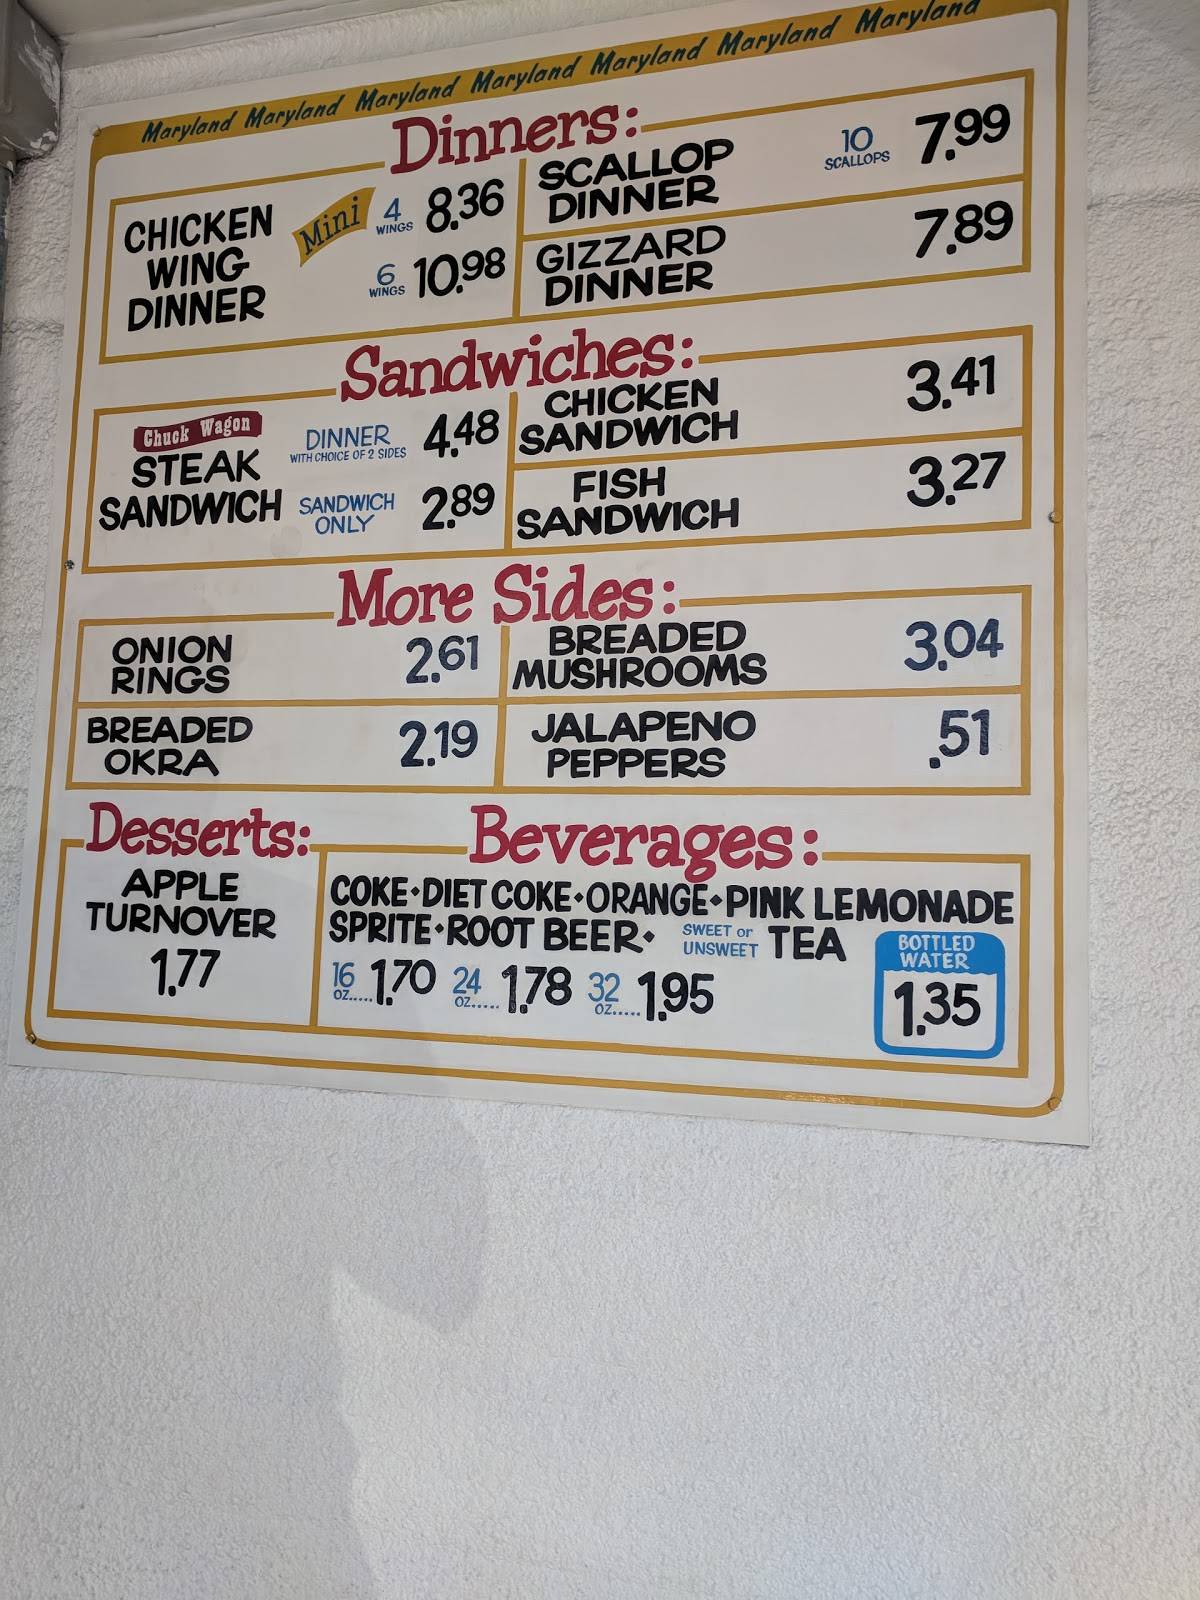 Maryland Maryland Maryland Maryland Maryland Maryland Maryland
Dinners:
CHICKEN
WING
DINNER
Mini
4
WINGS
8.36
6
WINGS
10.98
SCALLOP
DINNER
10
SCALLOPS
7.99
GIZZARD
DINNER
7.89
Sandwiches:
Chuck Wagon
STEAK
SANDWICH
DINNER
WITH CHOICE OF 2 SIDES
4.48
SANDWICH
ONLY
2.89
CHICKEN
SANDWICH
3.41
FISH
SANDWICH
3.27
More Sides:
ONION
RINGS
2.61
BREADED
MUSHROOMS
3.04
BREADED
OKRA
2.19
JALAPENO
PEPPERS
.51
Desserts:
APPLE
TURNOVER
1.77
Beverages:
COKE•DIET COKE•ORANGE•PINK LEMONADE
SPRITE•ROOT BEER• SWEET or UNSWEET TEA
16 OZ..... 1.70 24 OZ..... 1.78 32 OZ..... 1.95
BOTTLED
WATER
1.35